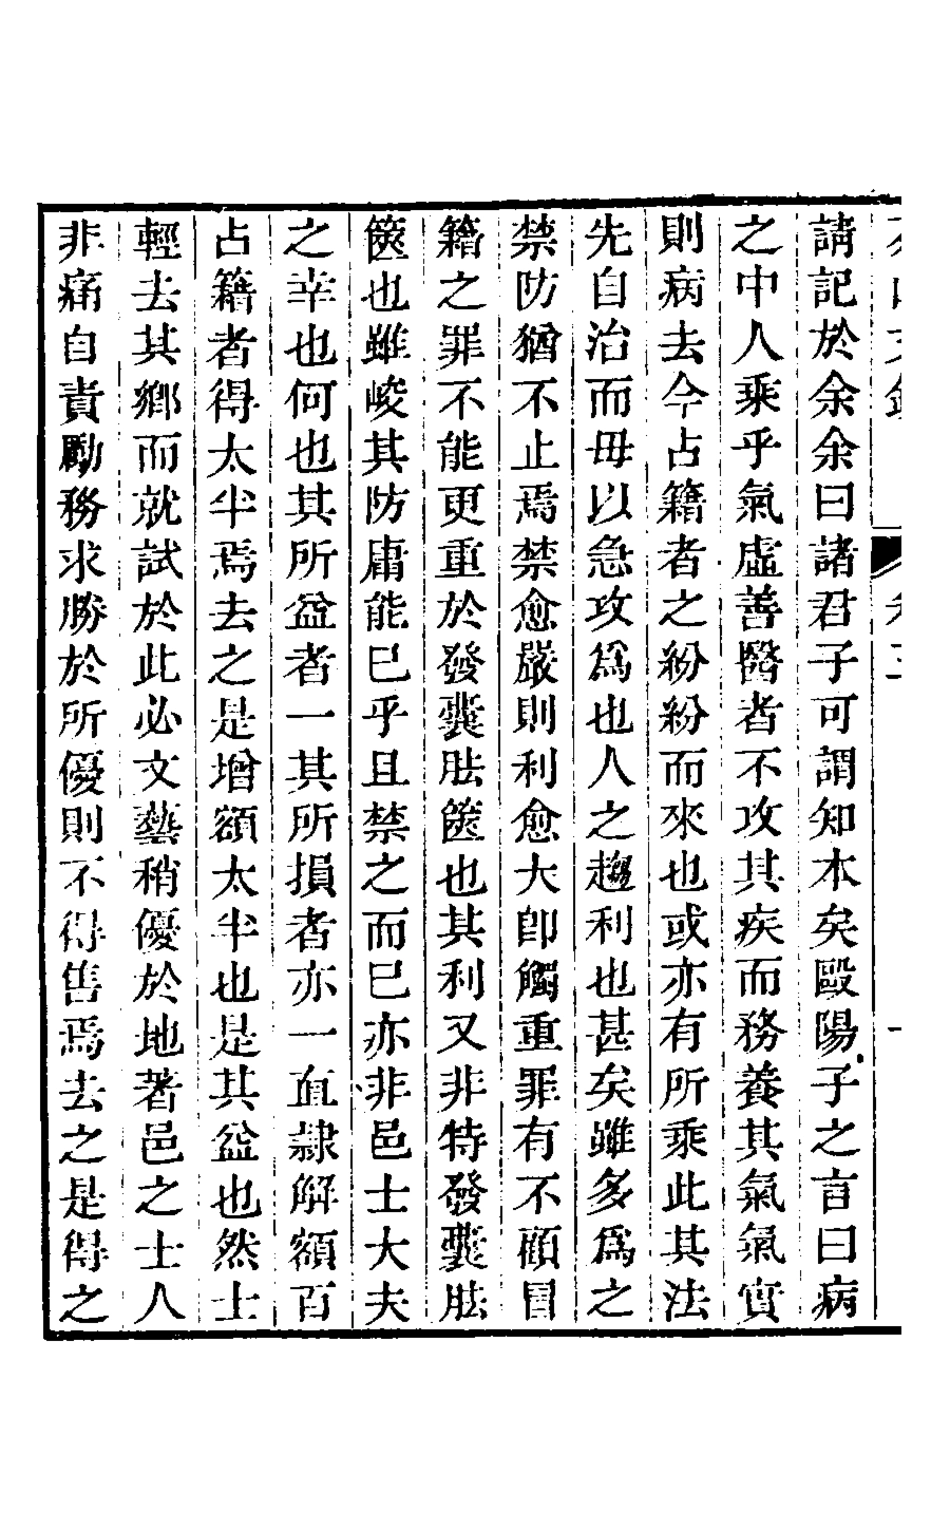 請記於余余曰諸君子可謂知本矣歐陽子之言曰病
之中人乘乎氣虛善醫者不攻其疾而務養其氣氣實
則病去今占籍者之紛紛而來也或亦有所乘此其法
先自治而毋以急攻爲也人之趨利也甚矣雖多爲之
禁防猶不止焉禁愈嚴則利愈大卽觸重罪有不顧冒
籍之罪不能更重於發囊胠篋也其利又非特發囊胠
篋也雖峻其防庸能已乎且禁之而已亦非邑士大夫
之幸也何也其所益者一其所損者亦一直隸解額百
占籍者得太半焉去之是增額太半也是其益也然士
輕去其鄉而就試於此必文藝稍優於地著邑之士人
非痛自責勵務求勝於所優則不得售焉去之是得之